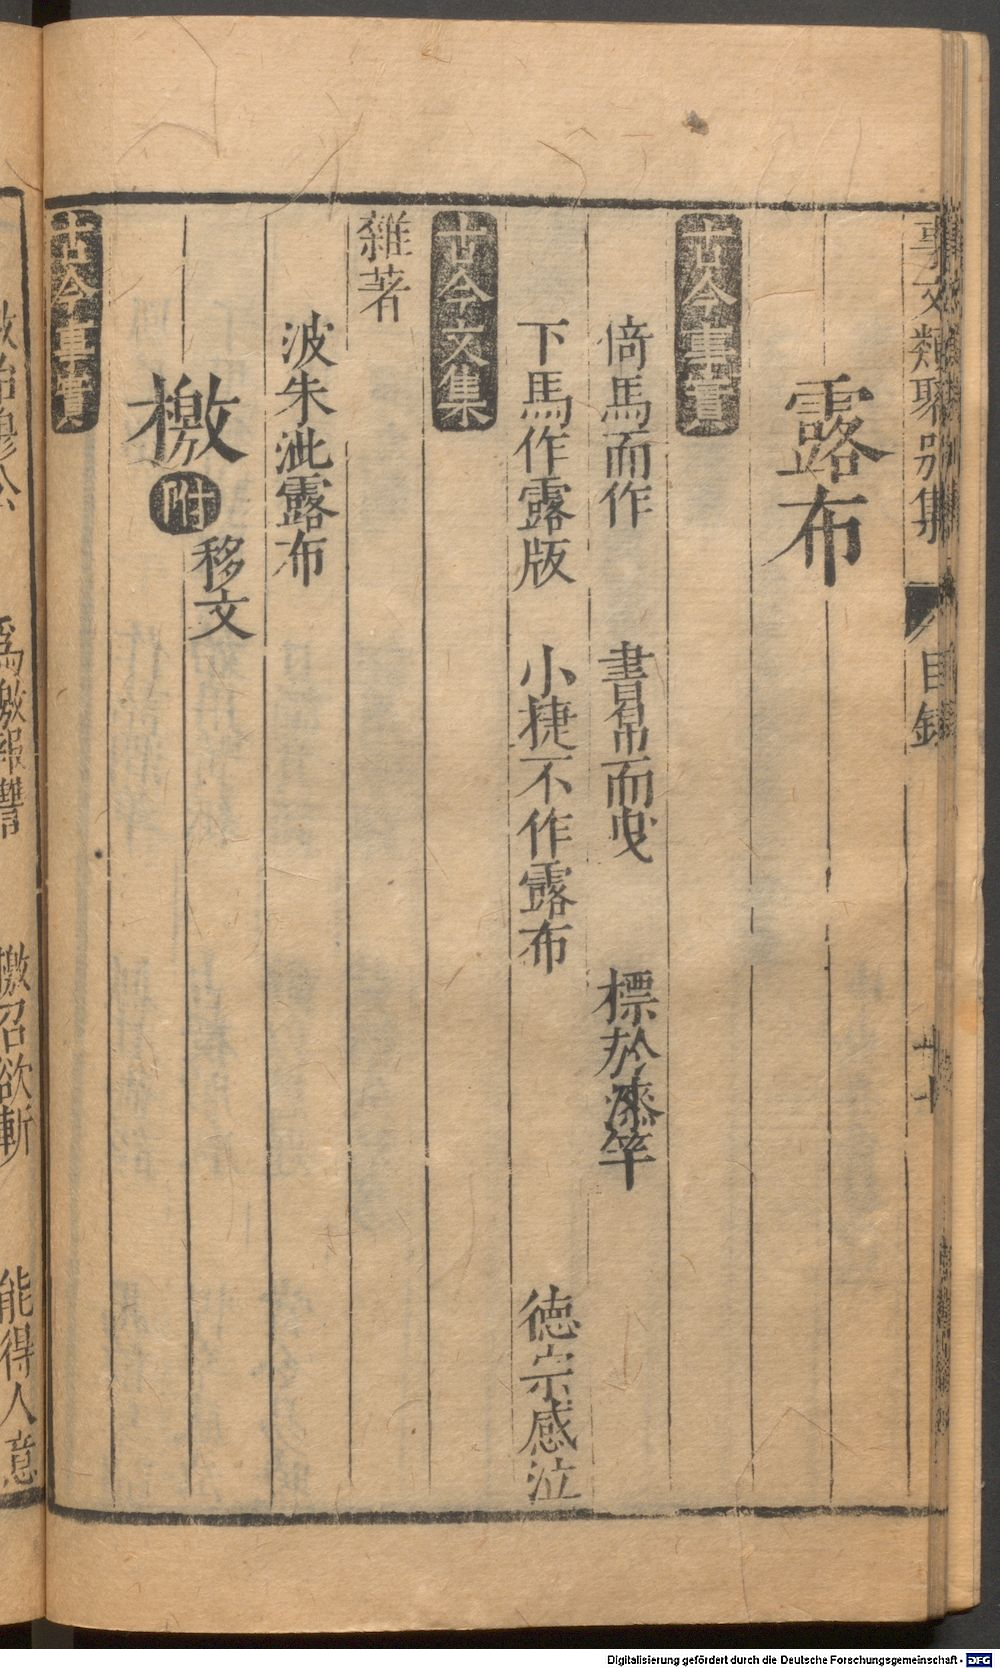 事文類聚別集　目錄　十七
露布
古今事實
倚馬而作　書帛而曳　標於漆竿
下馬作露版　小捷不作露布　德宗感泣
古今文集
雜著
波朱泚露布
檄附移文
古今事實
為檄報讐　檄召欲斬　能得人意
Digitalisierung gefördert durch die Deutsche Forschungsgemeinschaft - DFG